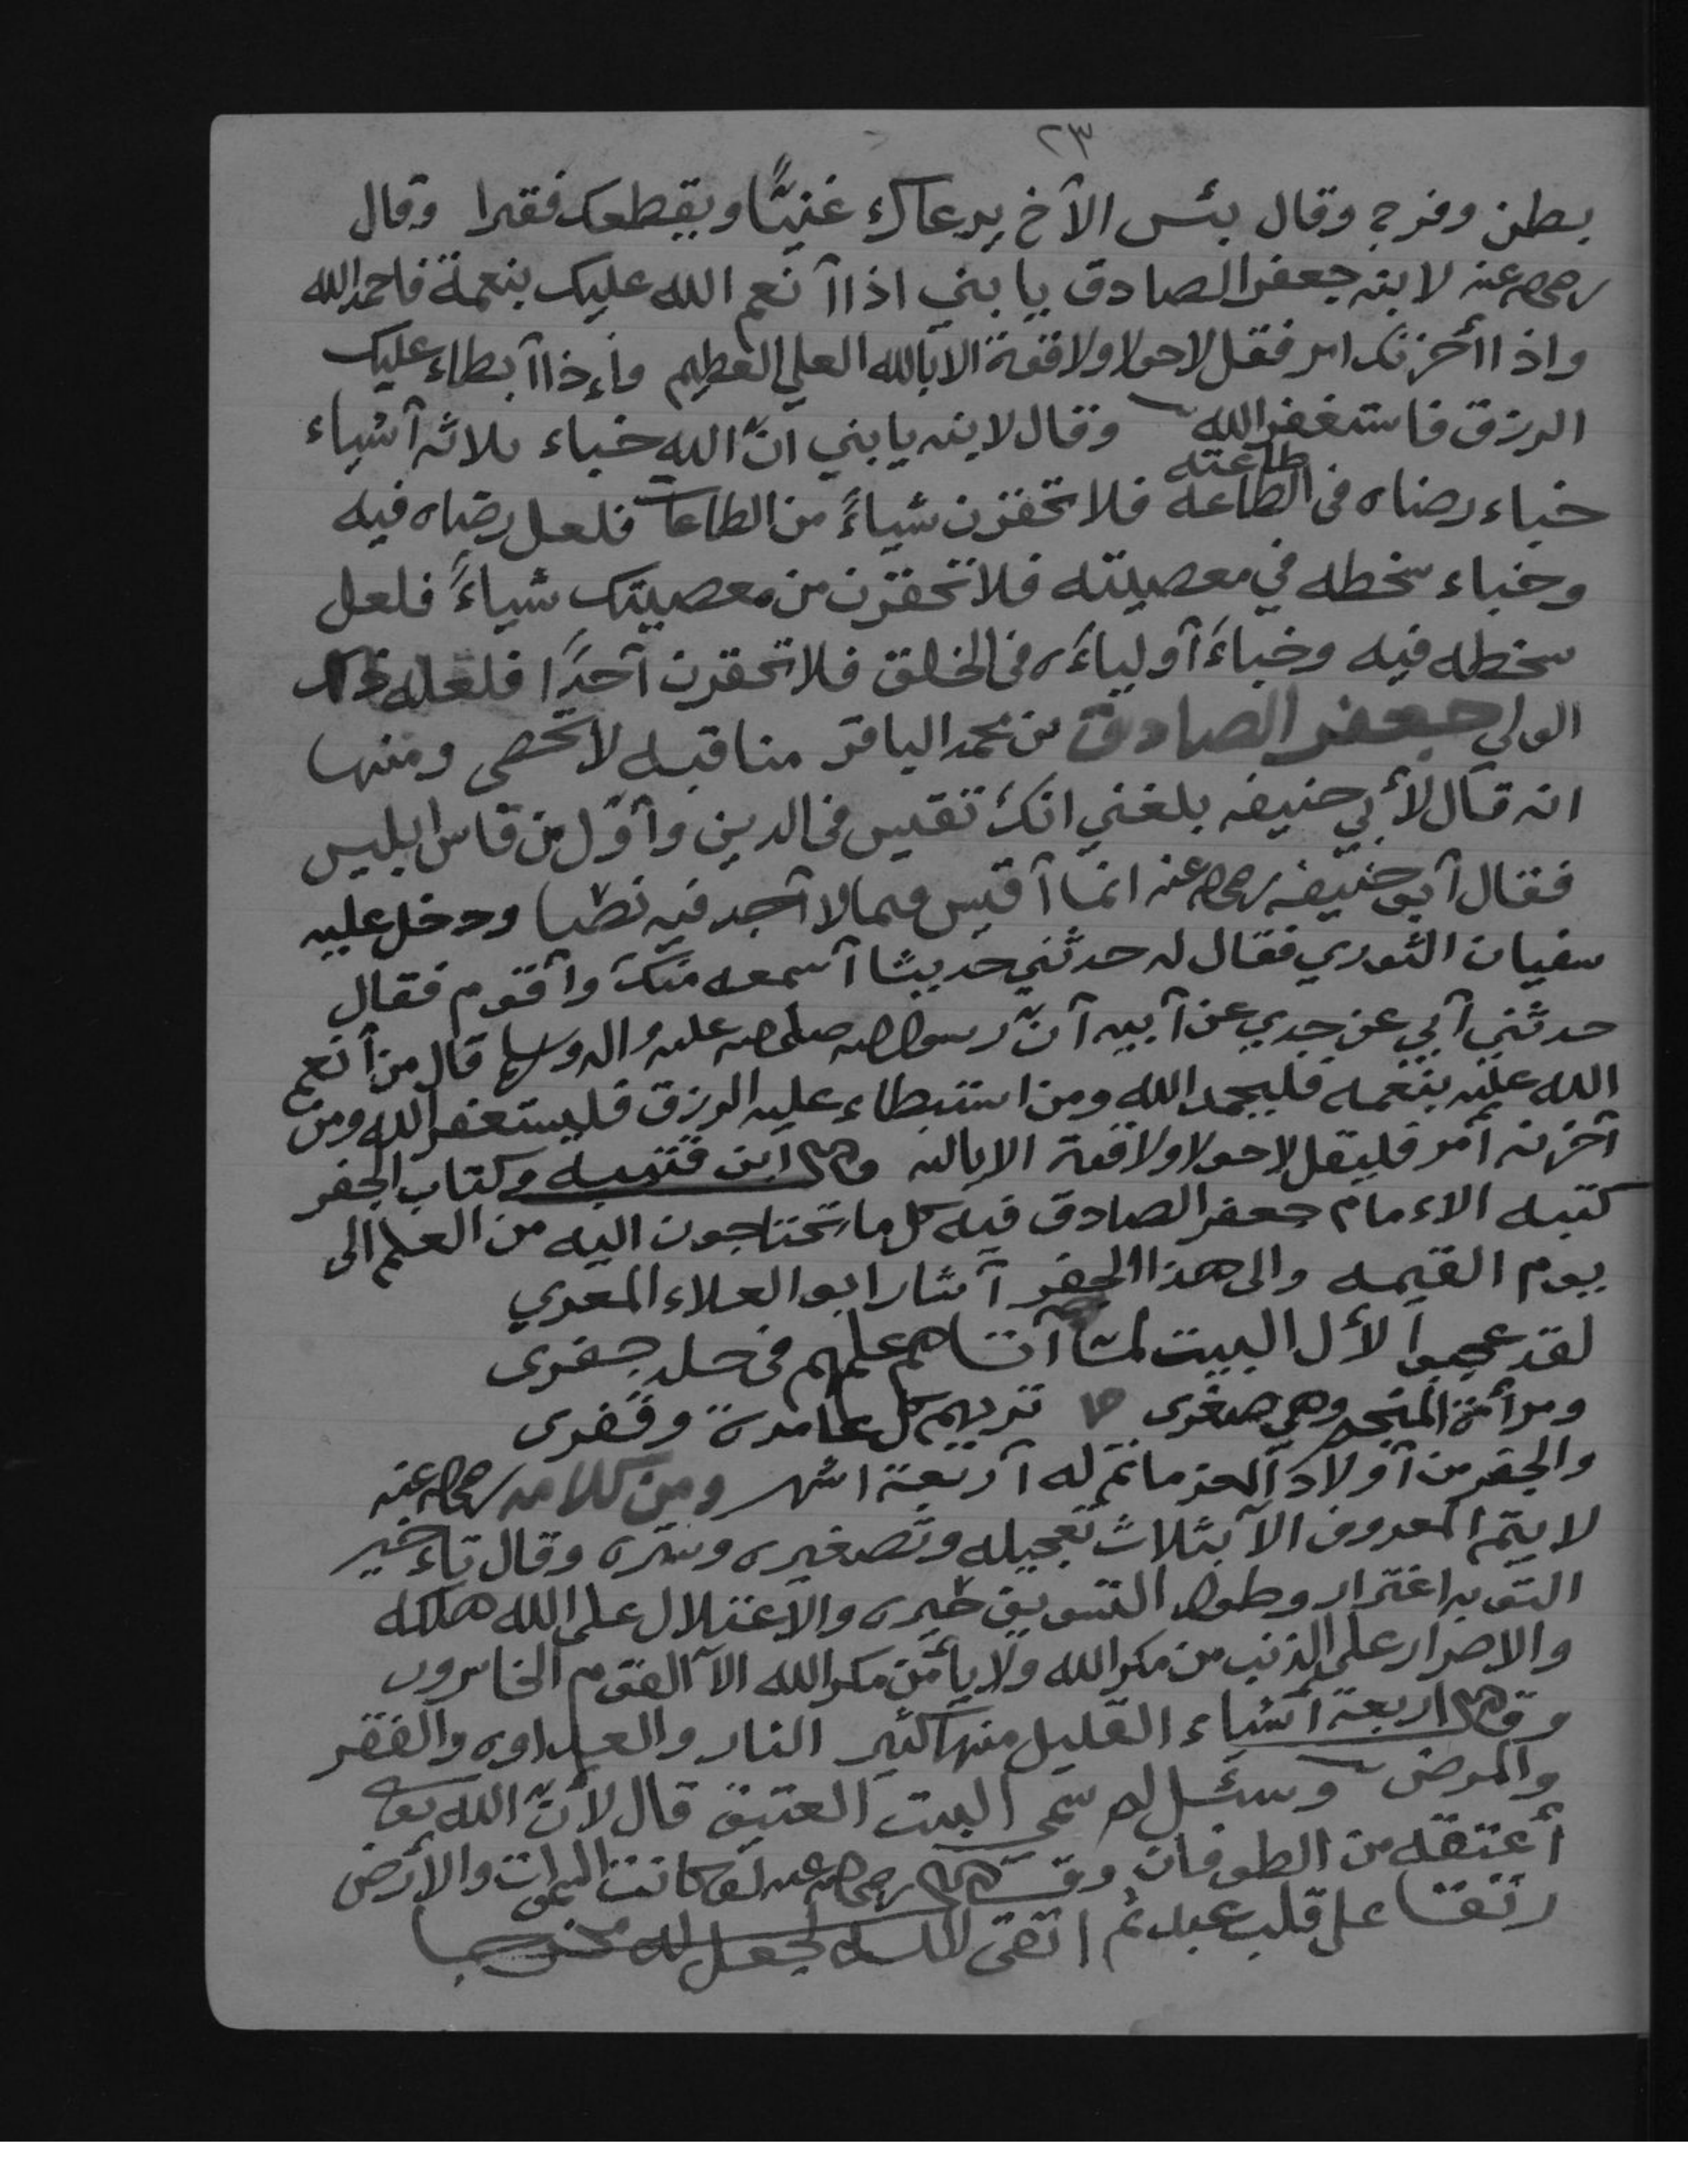 ٢٣
بطن وفرج وقال بئس الآخ يرعاك غنيًّا ويقطعك فقيرا وقال
رضي الله عنه لابنه جعفر الصادق يا بني اذا آنعم الله عليك بنعمة فاحمد الله
واذا أحزنك امر فقل لاحولا ولاقوة الا بالله العلي العظيم وأذا آبطاء عليك
الرزق فاستغفر الله وقال لابنه يا بني انّ الله خباء ثلاثه آشياء
خباء رضاه في الطاعة طاعته فلا تحقرن شياءً من الطاعا فلعل رضاه فيه
وخباء سخطه في معصيته فلا تحقرن من معصيتك شياءً فلعل
سخطه فيه وخباءَ آولياءَه في الخلق فلا تحقرن آحدًا فلعله ذلك
الولي جعفر الصادق بن محمد الباقر مناقبه لا تحصى ومنها
انه قال لأبي حنيفه بلغني انك تقيس في الدين وآوّل من قاس ابليس
فقال آبو حنيفه رضي الله عنه انما آقيس فيما لا آجد فيه نصا ودخل عليه
سفيان الثوري فقال له حدثني حديثا آسمعه منك وآقوم فقال
حدثني آبي عن جدي عن آبيه آنّ رسول الله صلى الله عليه واله وسلم قال من أنعم
الله عليه بنعمه فليحمد الله ومن استبطاء عليه الرزق فليستغفر الله ومن
آحزنه آمر فليقل لاحولا ولاقوة الا بالله وقال ابن قتيبه وكتاب الجفر
كتبه الاءمام جعفر الصادق فيه كل ما تحتاجون اليه من العلم الى
يوم القيمه والى هذا الجفر آشار ابو العلاء المعري
لقد عجبوا لأل البيت لمّا آتاهم علمهم في جلد جفرى
ومرأة المنجم وهي صغرى تريهم كل عامرة وقفرى
والجفر من آولاد المعز ماتم له آربعة اشهر ومن كلامه رضي الله عنه
لا يتم المعروف الآ بثلاث تعجيله وتصغيره وستره وقال تاءخير
التوبه اغترار وطول التسويف حيره والاعتلال على الله هلكه
والاصرار على الذنب من مكر الله ولا يأمن مكر الله الآ القوم الخاسرون
وقال اربعة آشياء القليل منها كثير النار والعداوه والفقر
والمرض وسئل لم سمي البيت العتيق قال لأنّ الله تعالى
أعتقه من الطوفان وقال رضي الله عنه لو كانت السموات والأرض
رتقا على قلب عبد ثم اتقى الله لجعل له مخرجا